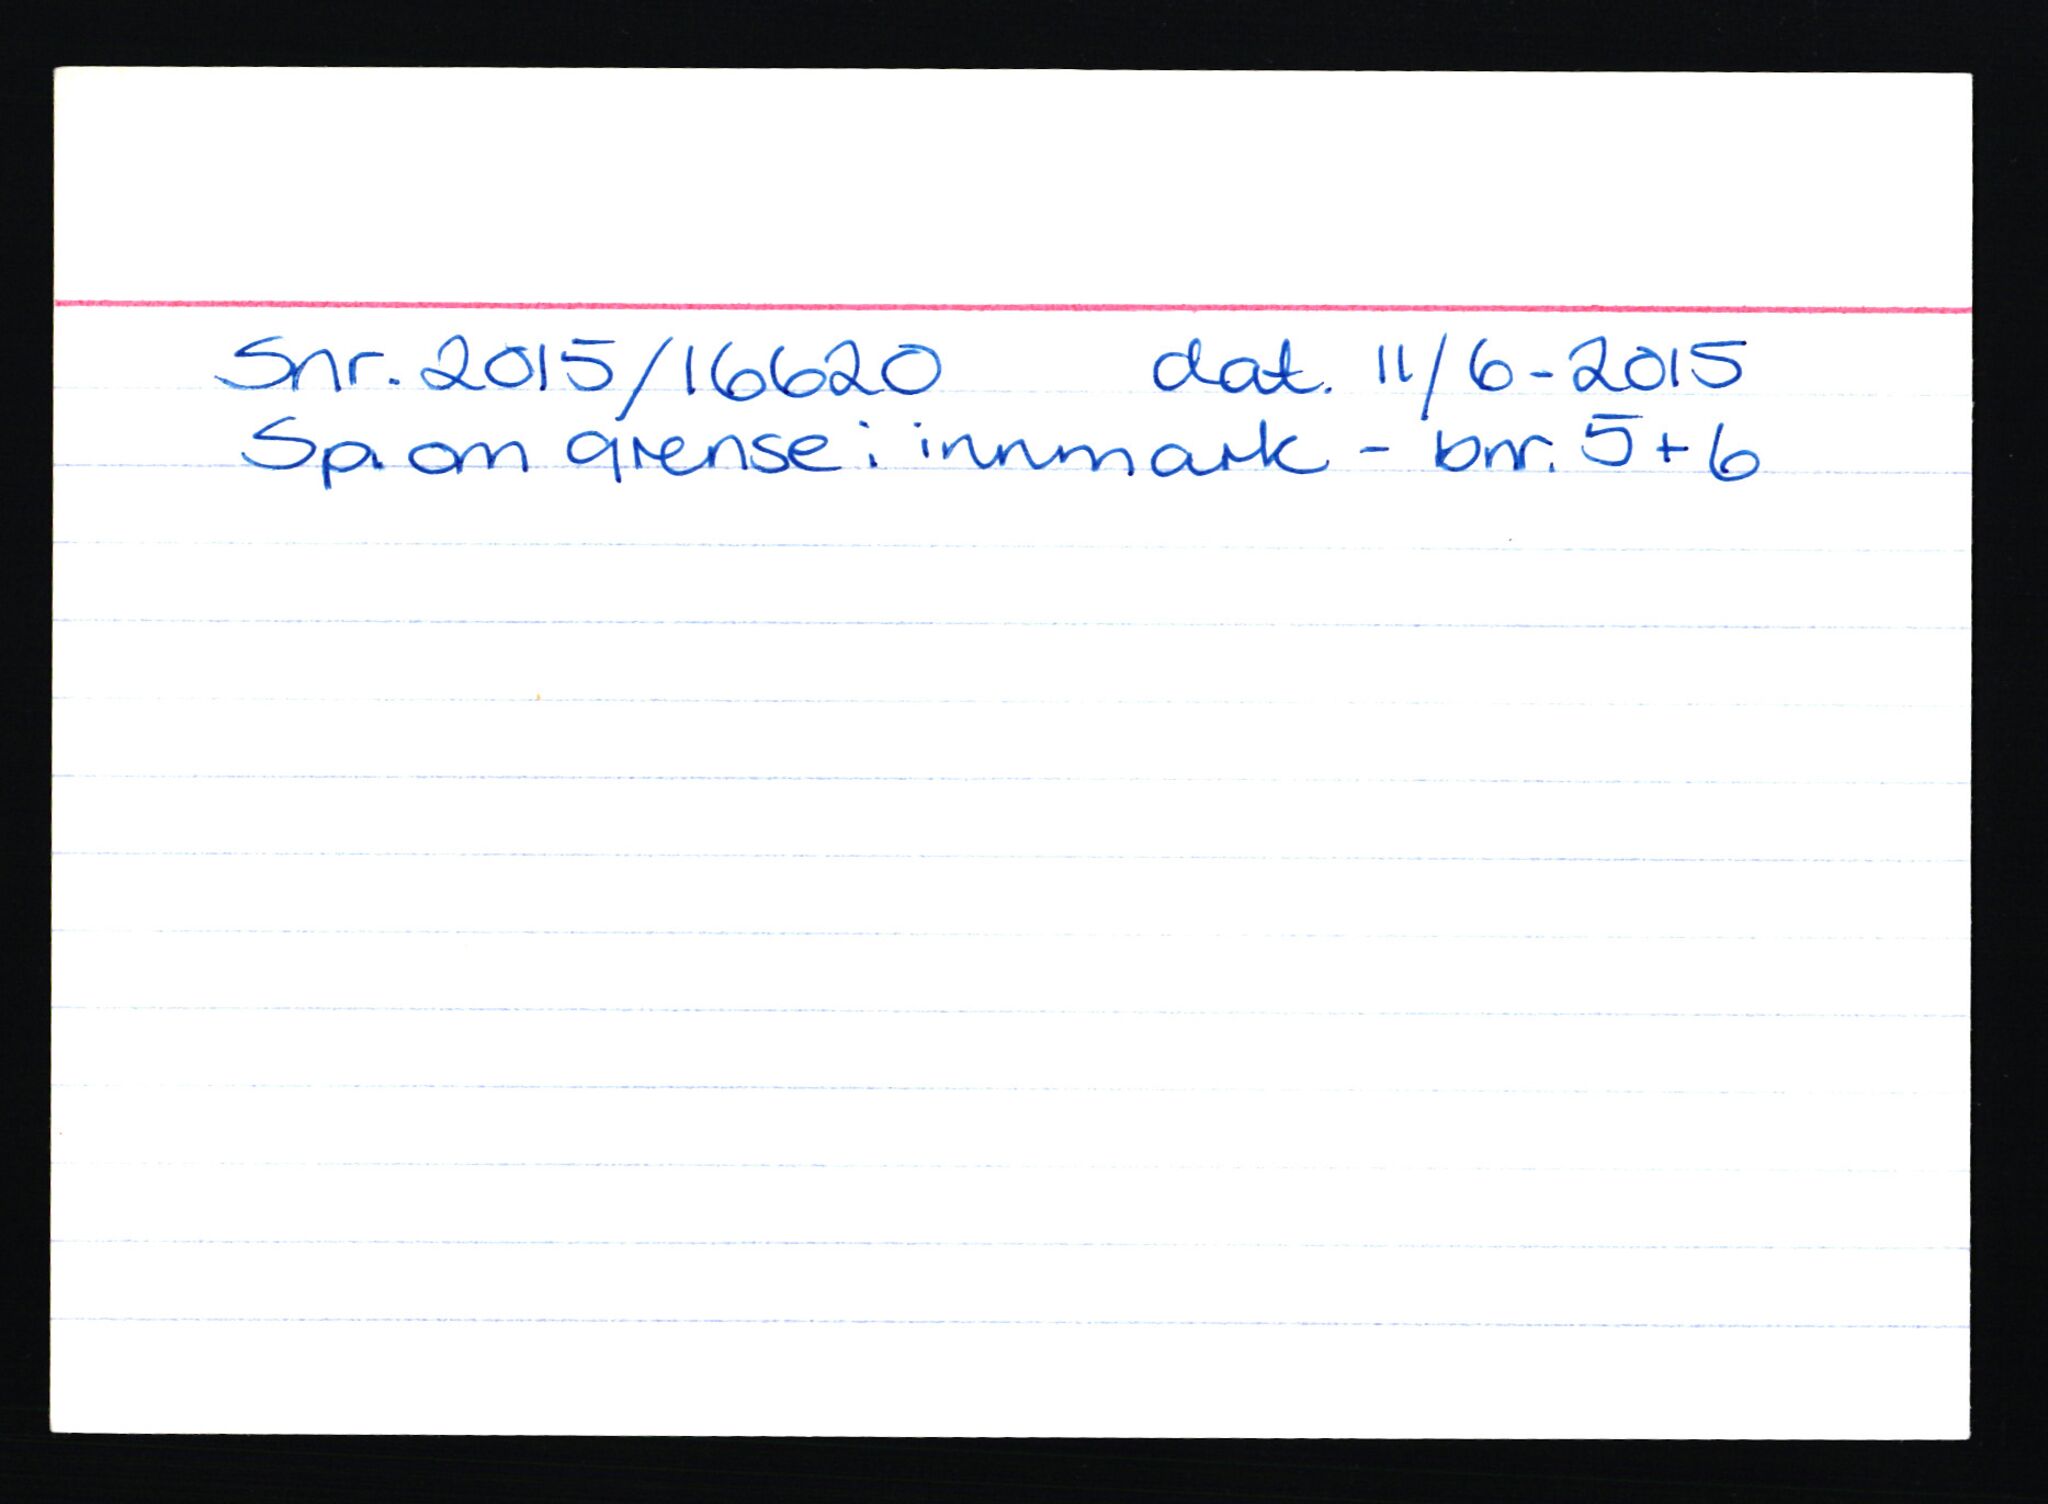 Snr. 2015/16620 dat. 11/6-2015
Sp. om grense i innmark - bnr. 5+6